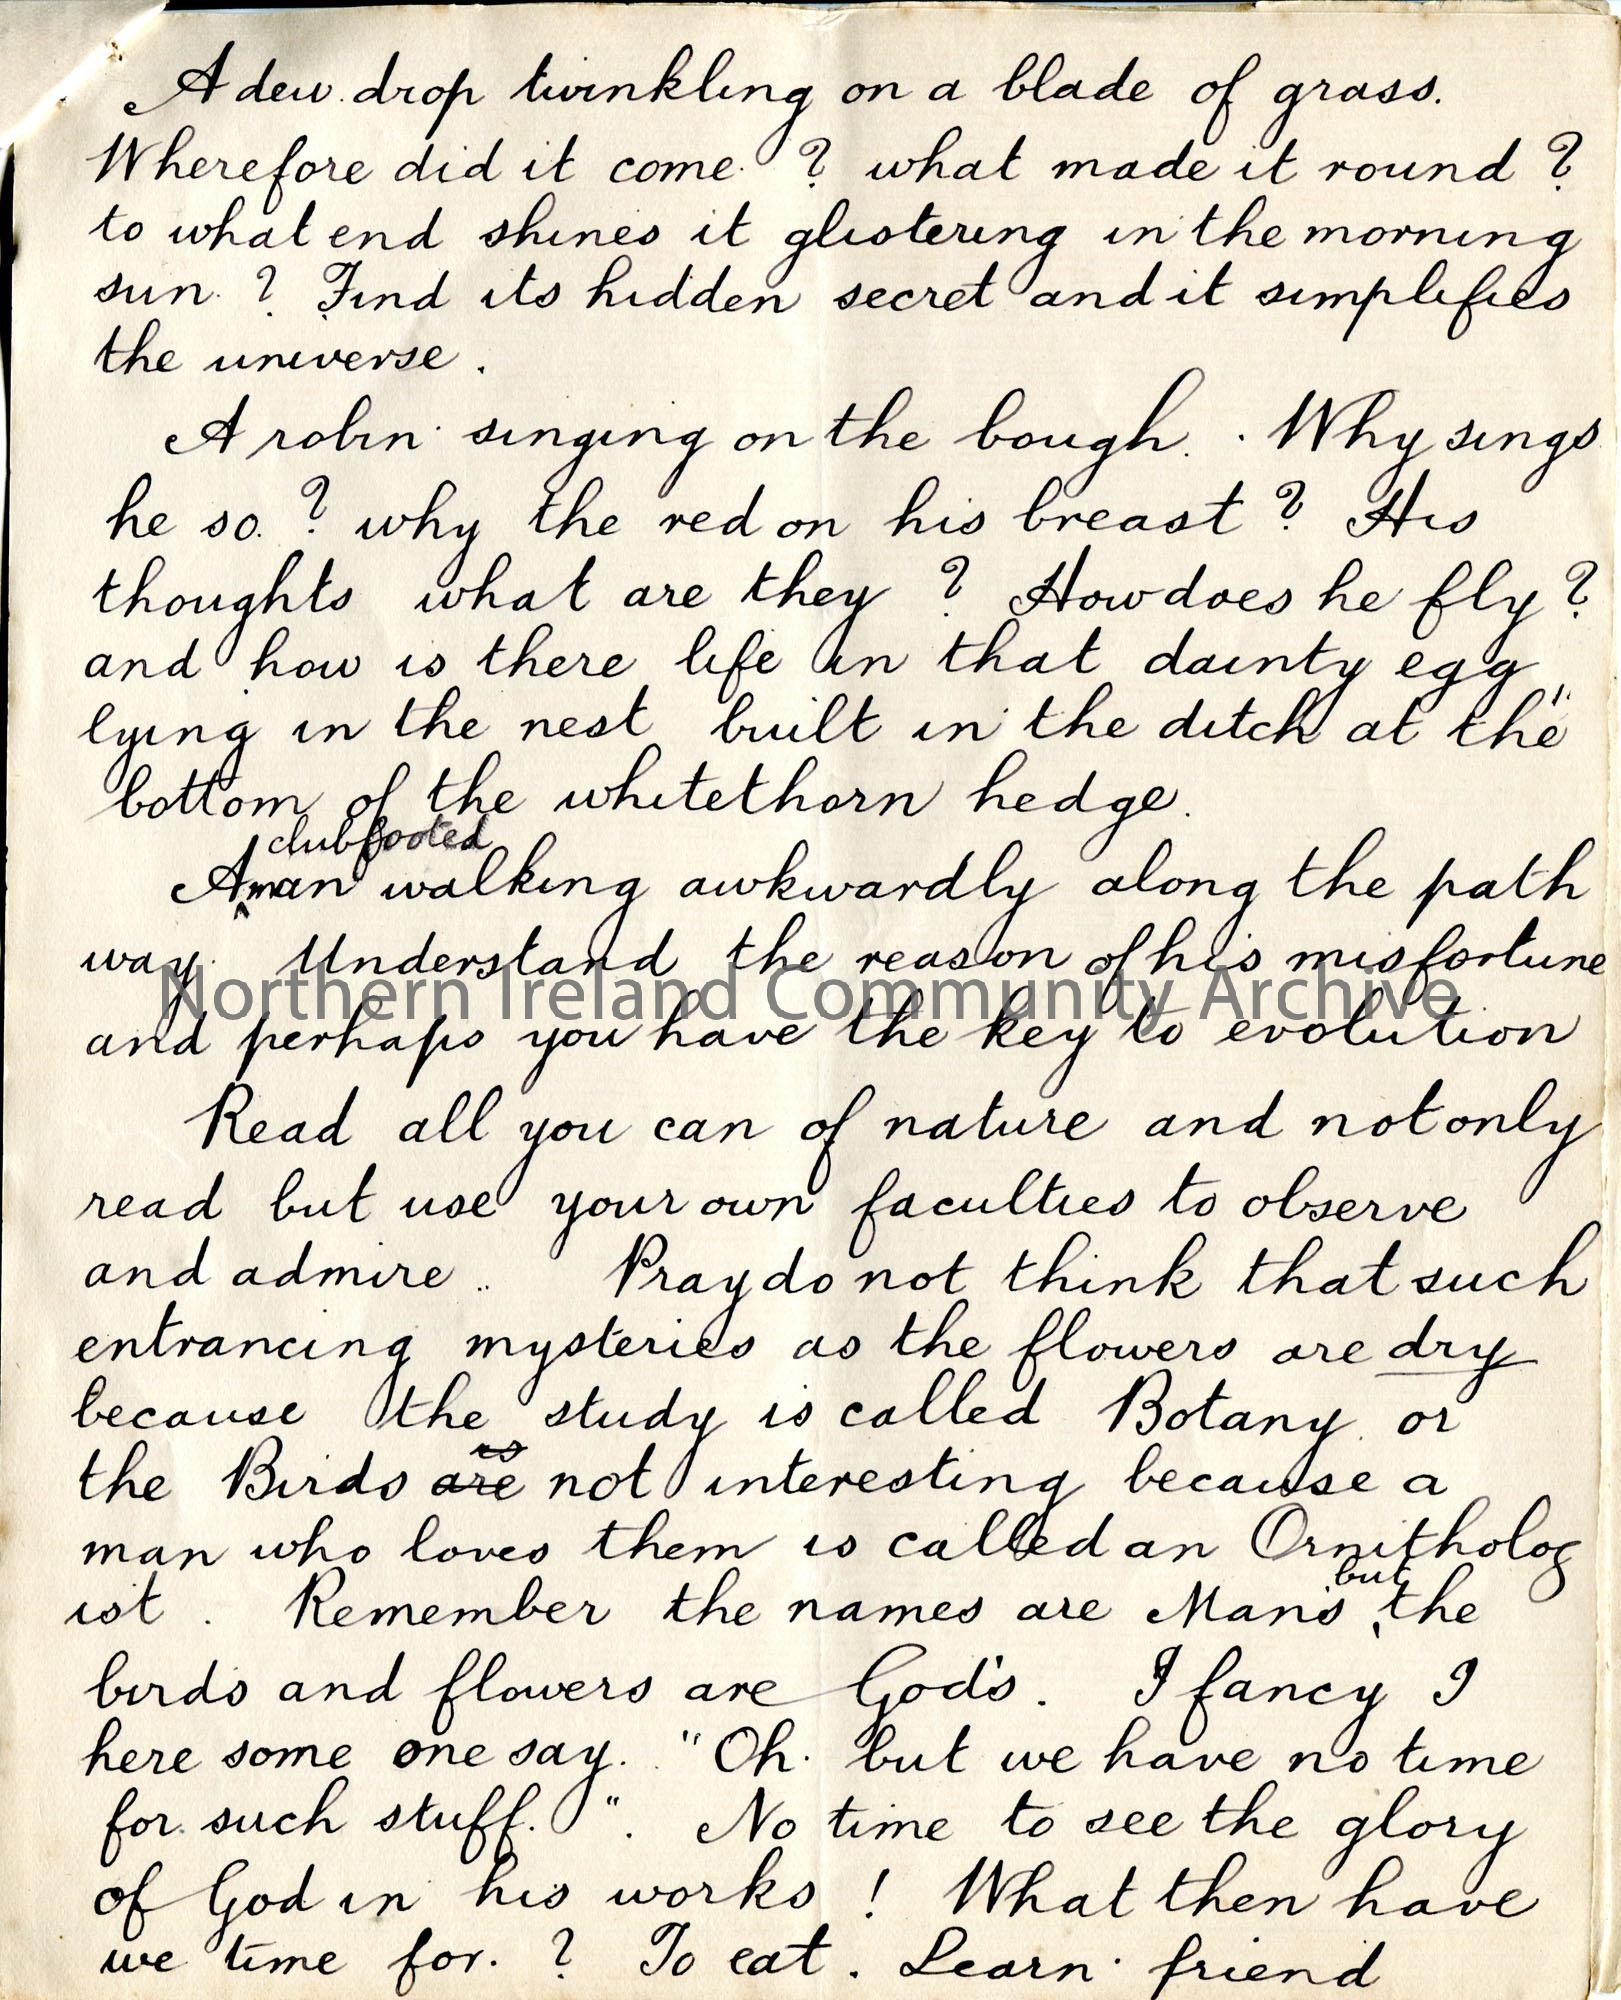 A dew drop twinkling on a blade of grass.
Wherefore did it come ? what made it round ?
to what end shines it glistering in the morning
sun ? Find its hidden secret and it simplifies
the universe .
A robin singing on the bough . Why sings
he so ? why the red on his breast ? His
thoughts what are they ? How does he fly ?
and how is there life in that dainty egg
lying in the nest built in the ditch at the"
bottom of the whitethorn hedge.
clubfooted
A man walking awkwardly along the path
way. Understand the reason of his misfortune
Northern Ireland Community Archive
and perhaps you have the key to evolution
Read all you can of nature and not only
read but use your own faculties to observe
and admire .. Pray do not think that such
entrancing mysteries as the flowers are dry
because the study is called Botany or
the Birds are not interesting because a
man who loves them is called an Ornitholog
but
ist . Remember the names are Mans the
birds and flowers are God's . I fancy I
here some one say. "Oh but we have no time
for such stuff. " . No time to see the glory
of God in his works ! What then have
we time for. ? To eat . Learn friend